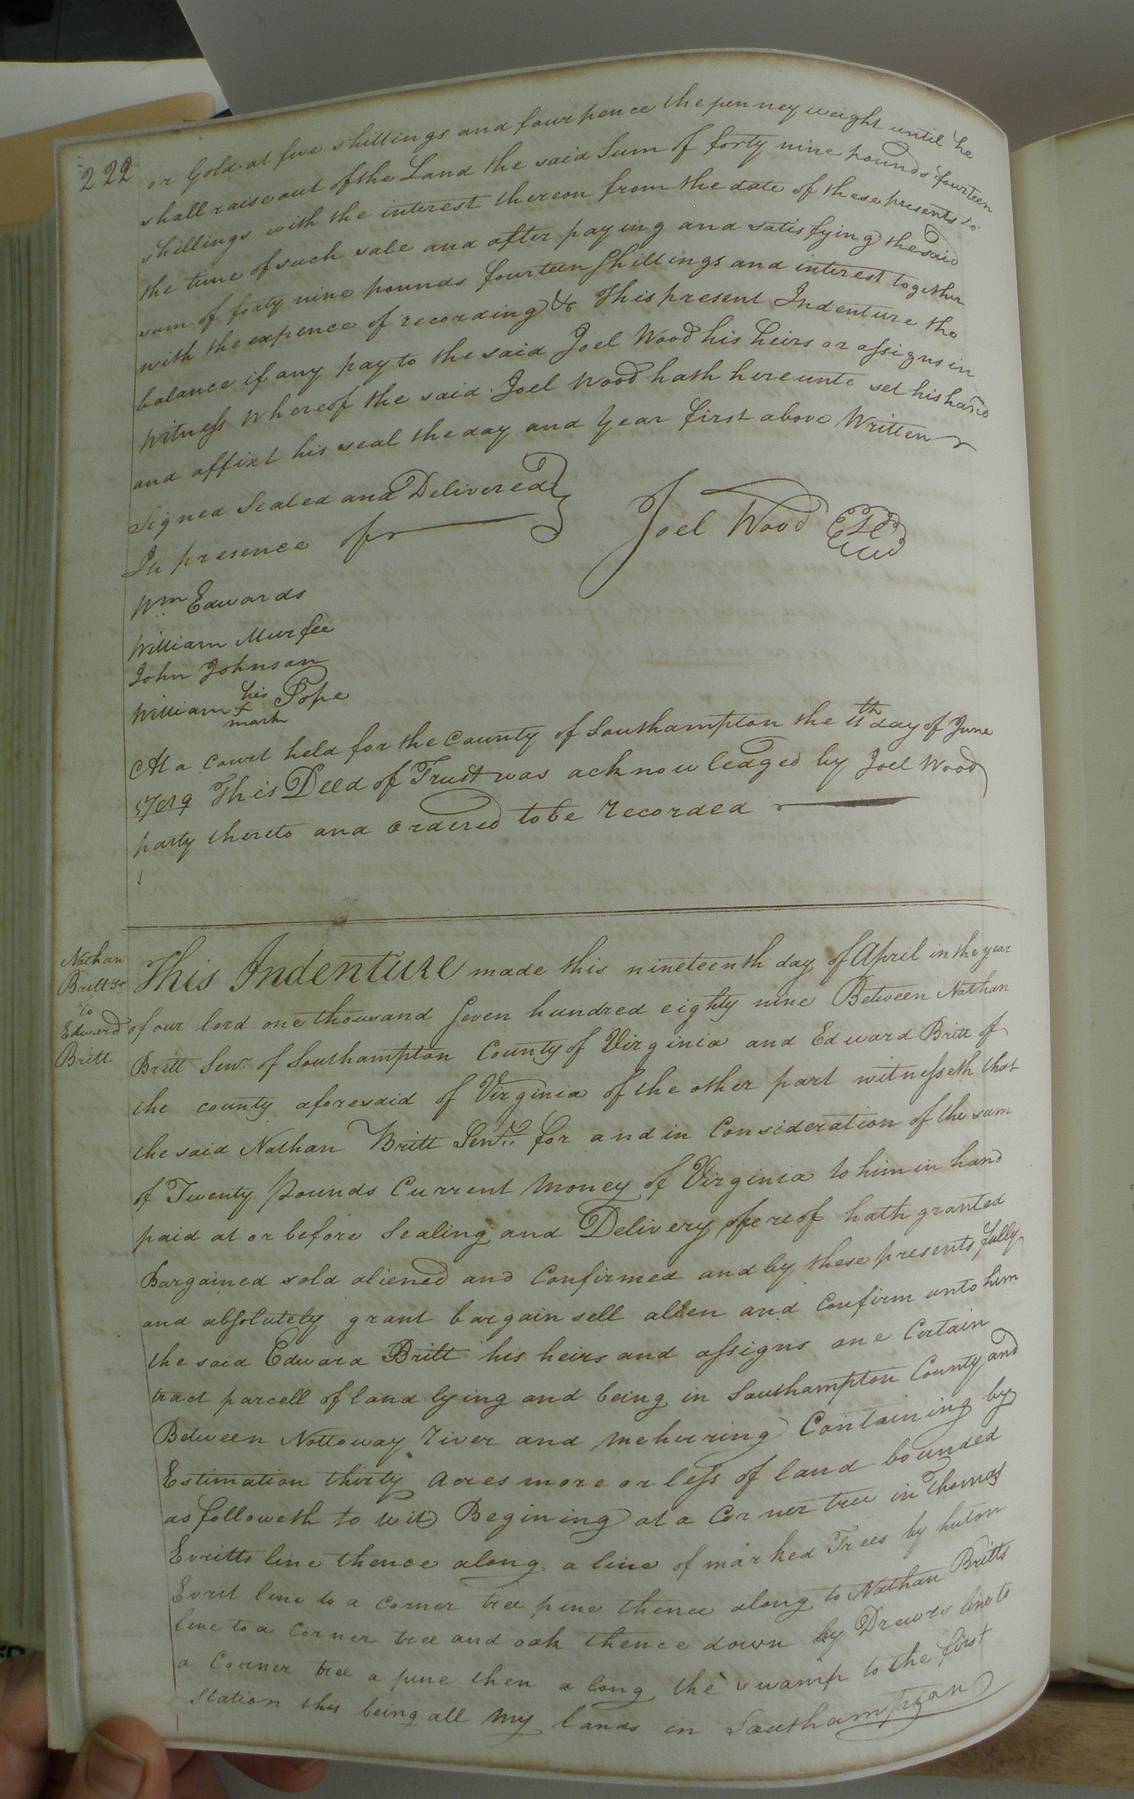 222
or Gold at five shillings and four pence the penney weight until he
shall raise out of the Land the said Sum of forty nine pounds fourteen
shillings with the interest thereon from the date of these presents to
the time of such sale and after paying and satisfying the said
sum of forty nine pounds fourteen Shillings and interest together
with the expence of recording &c This present Indenture the
balance if any pay to the said Joel Wood his heirs or assigns in
Witness Whereof the said Joel Wood hath hereunto set his hand
and affixt his seal the day and Year first above Written
Signed Sealed and Delivered
In presence of
Joel Wood
Wm Edwards
William Murfee
John Johnson
William his Pope
mark
At a Court held for the County of Southampton the 11th day of June
1789 This Deed of Trust was acknowledged by Joel Wood
party thereto and Ordered to be recorded
Nathan
Britt Sr
to
Edward
Britt
This Indenture made this nineteenth day of April in the year
of our lord one thousand Seven hundred eighty nine Between Nathan
Britt Senr. of Southampton County of Virginia and Edward Britt of
the county aforesaid of Virginia of the other part witnesseth that
the said Nathan Britt Senr. for and in Consideration of the sum
of Twenty Pounds Current Money of Virginia to him in hand
paid at or before Sealing and Delivery hereof hath granted
Bargained sold aliened and Confirmed and by these presents fully
and absolutely grant bargain sell alien and Confirm unto him
the said Edward Britt his heirs and assigns one Certain
tract parcell of land lying and being in Southampton County and
Between Nottoway river and Meherring Containing by
Estimation thirty Acres more or less of land bounded
as followeth to wit Begining at a Corner tree in Thomas
Evritts line thence along a line of marked Trees by huton
Evrit line to a corner tree pine thence along to Nathan Britts
line to a Corner tree and oak thence down by Drewrs line to
a Corner tree a pine then a long the swamp to the first
Station this being all my lands in Southampton